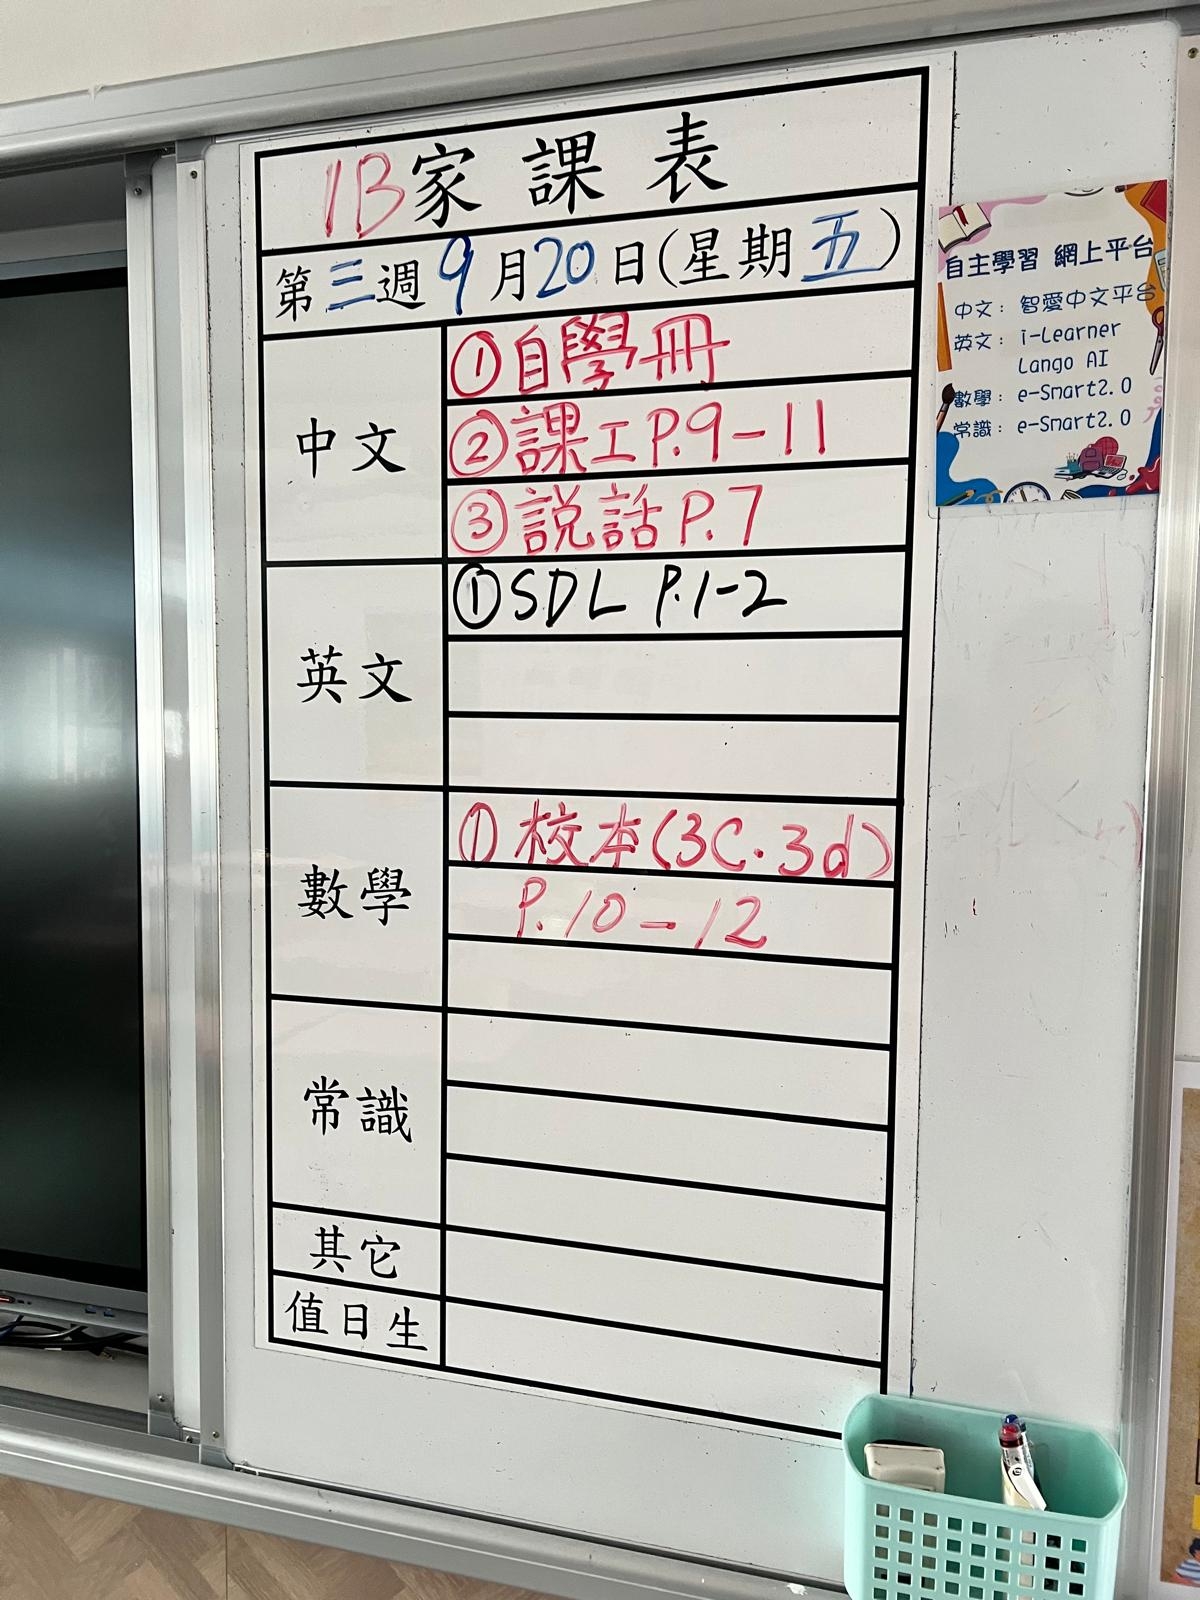 1B家課表
第三週9月20日(星期五)
中文
①自學冊
②課工P.9-11
③説話P.7
英文
①SDL P.1-2
數學
①校本(3C.3d)
P.10-12
常識
其它
值日生
自主學習 網上平台
中文：智愛中文平台
英文：i-Learner
Lango AI
數學：e-Smart2.0
常識：e-Smart2.0